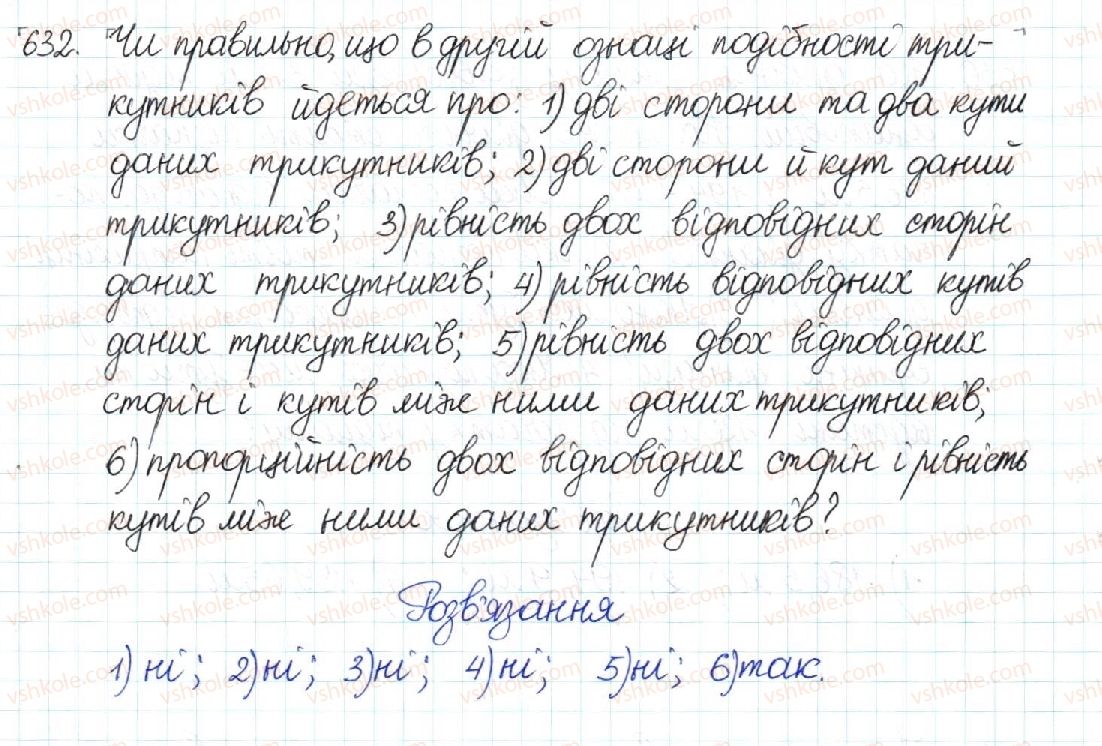 632. Чи правильно, що в другій ознаці подібності три-
кутників йдеться про: 1) дві сторони та два кути
даних трикутників; 2) дві сторони й кут даний
трикутників; 3) рівність двох відповідних сторін
даних трикутників; 4) рівність відповідних кутів
даних трикутників; 5) рівність двох відповідних
сторін і кутів між ними даних трикутників;
6) пропорційність двох відповідних сторін і рівність
кутів між ними даних трикутників?
Розв'язання
1) ні; 2) ні; 3) ні; 4) ні; 5) ні; 6) так.